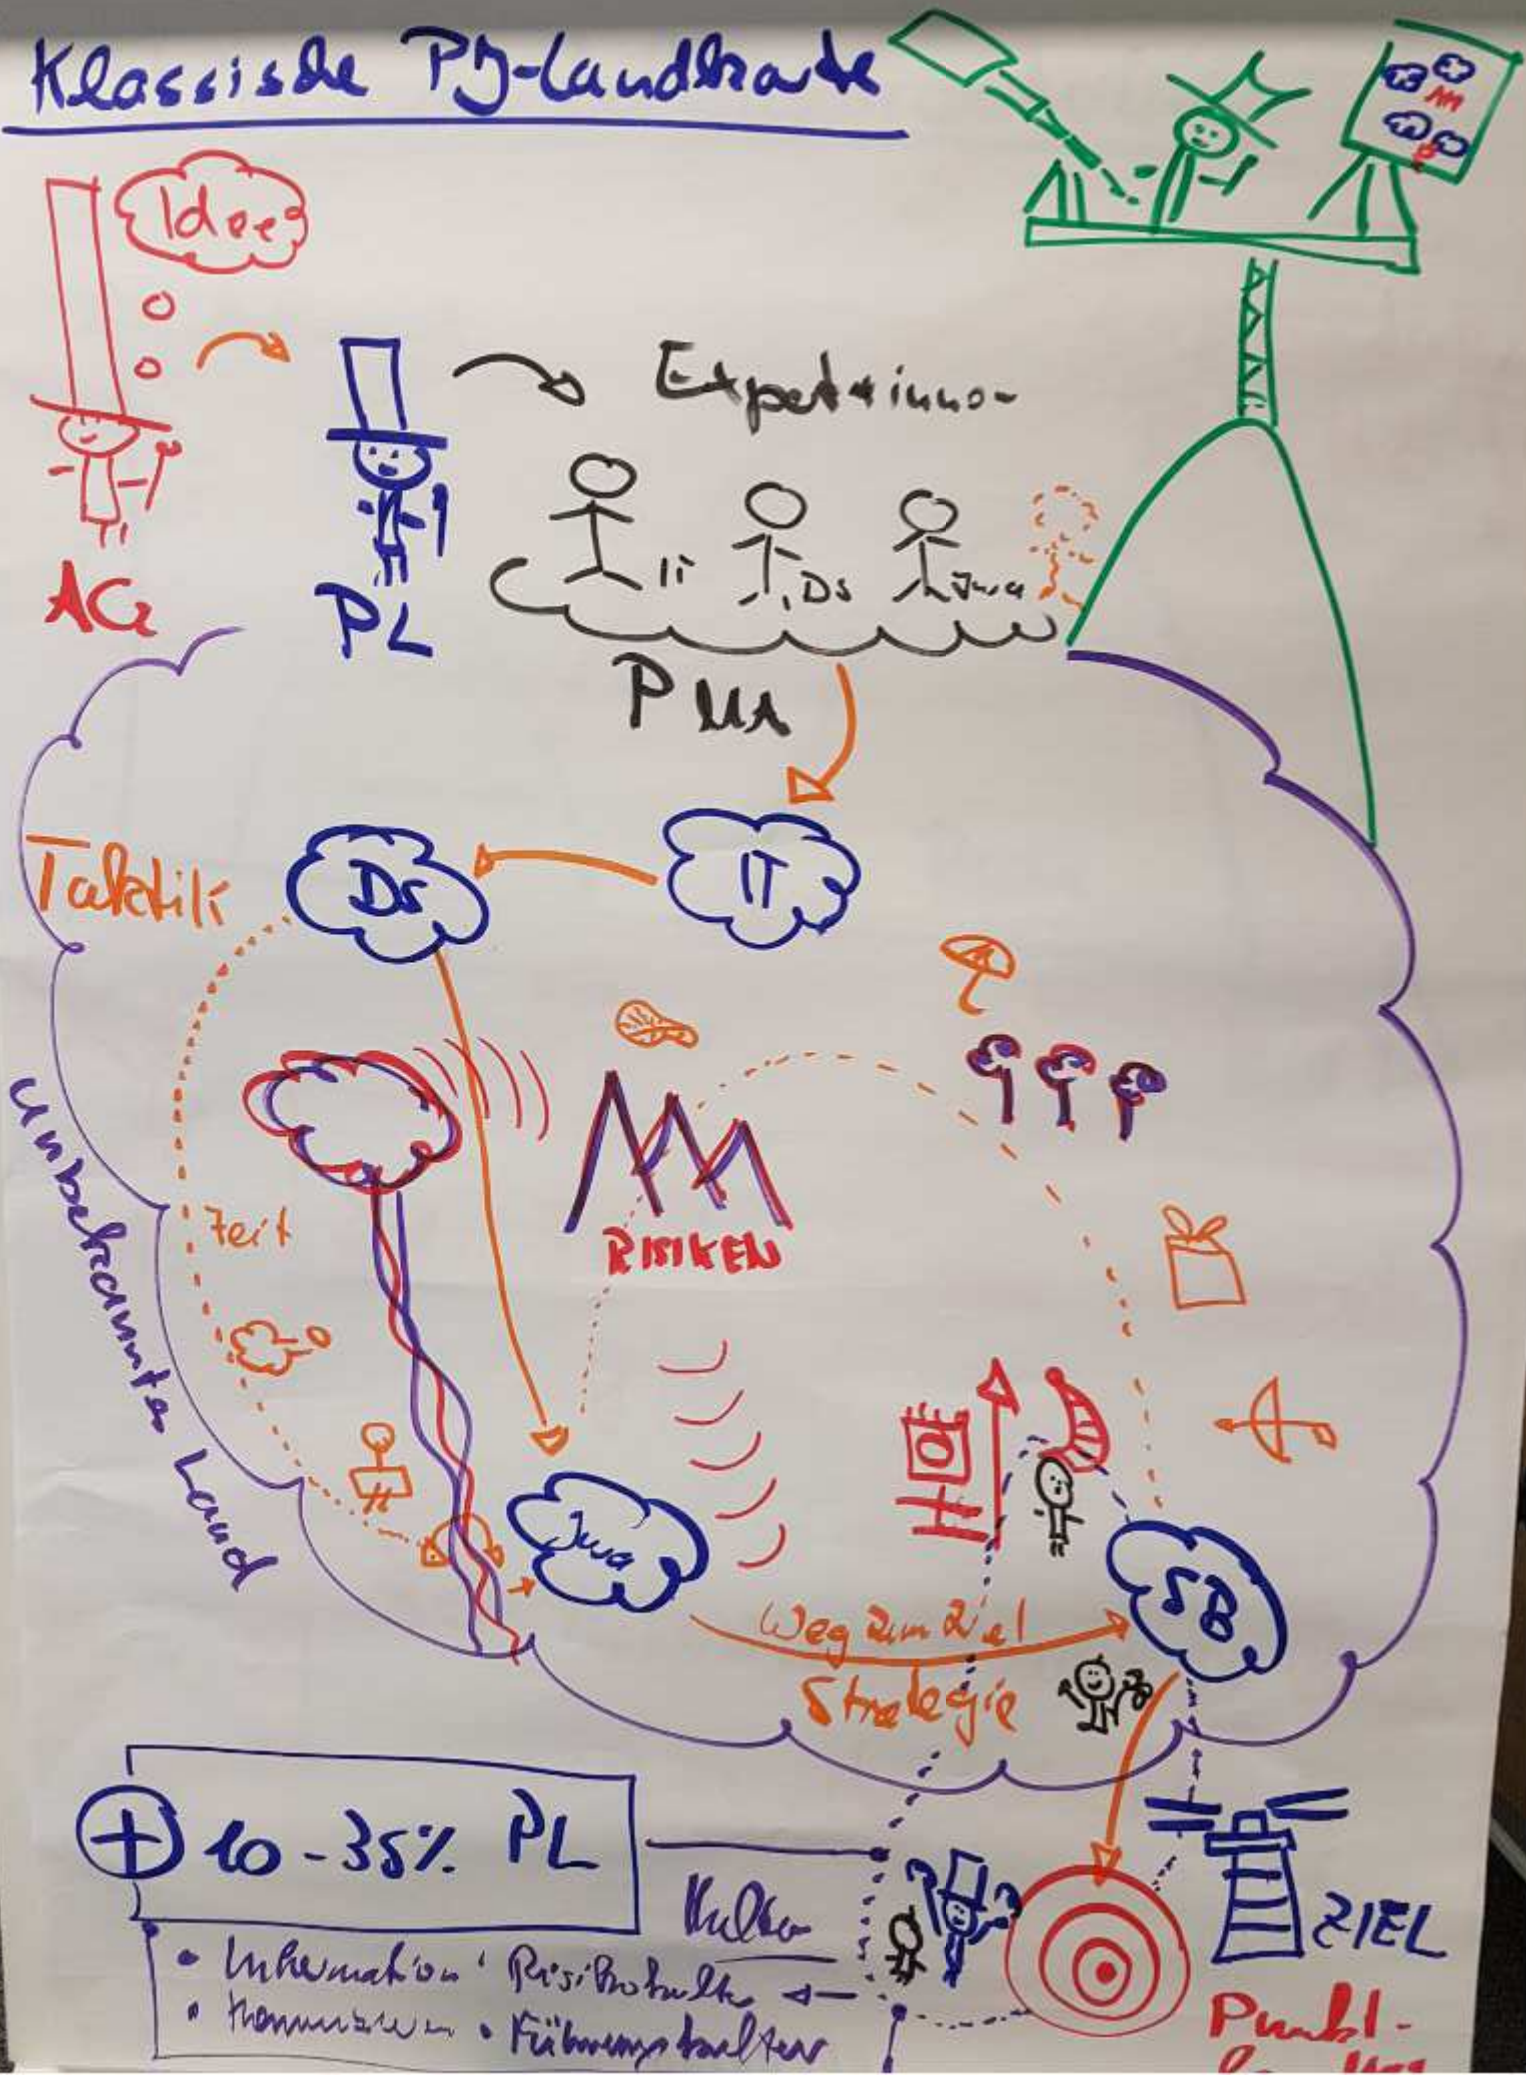 Klassische PJ-Landkarte
Idee
Expert*inno-
AG
PL
IT
DS
Jura
PMA
Taktik
DS
IT
Unbekanntes Land
Zeit
RISIKEN
Jura
SB
Weg zum Ziel
Strategie
+ 10-35% PL
Kultur
ZIEL
• Information • Risikokultur
• Kommunikation • Führungskultur
Punkt-